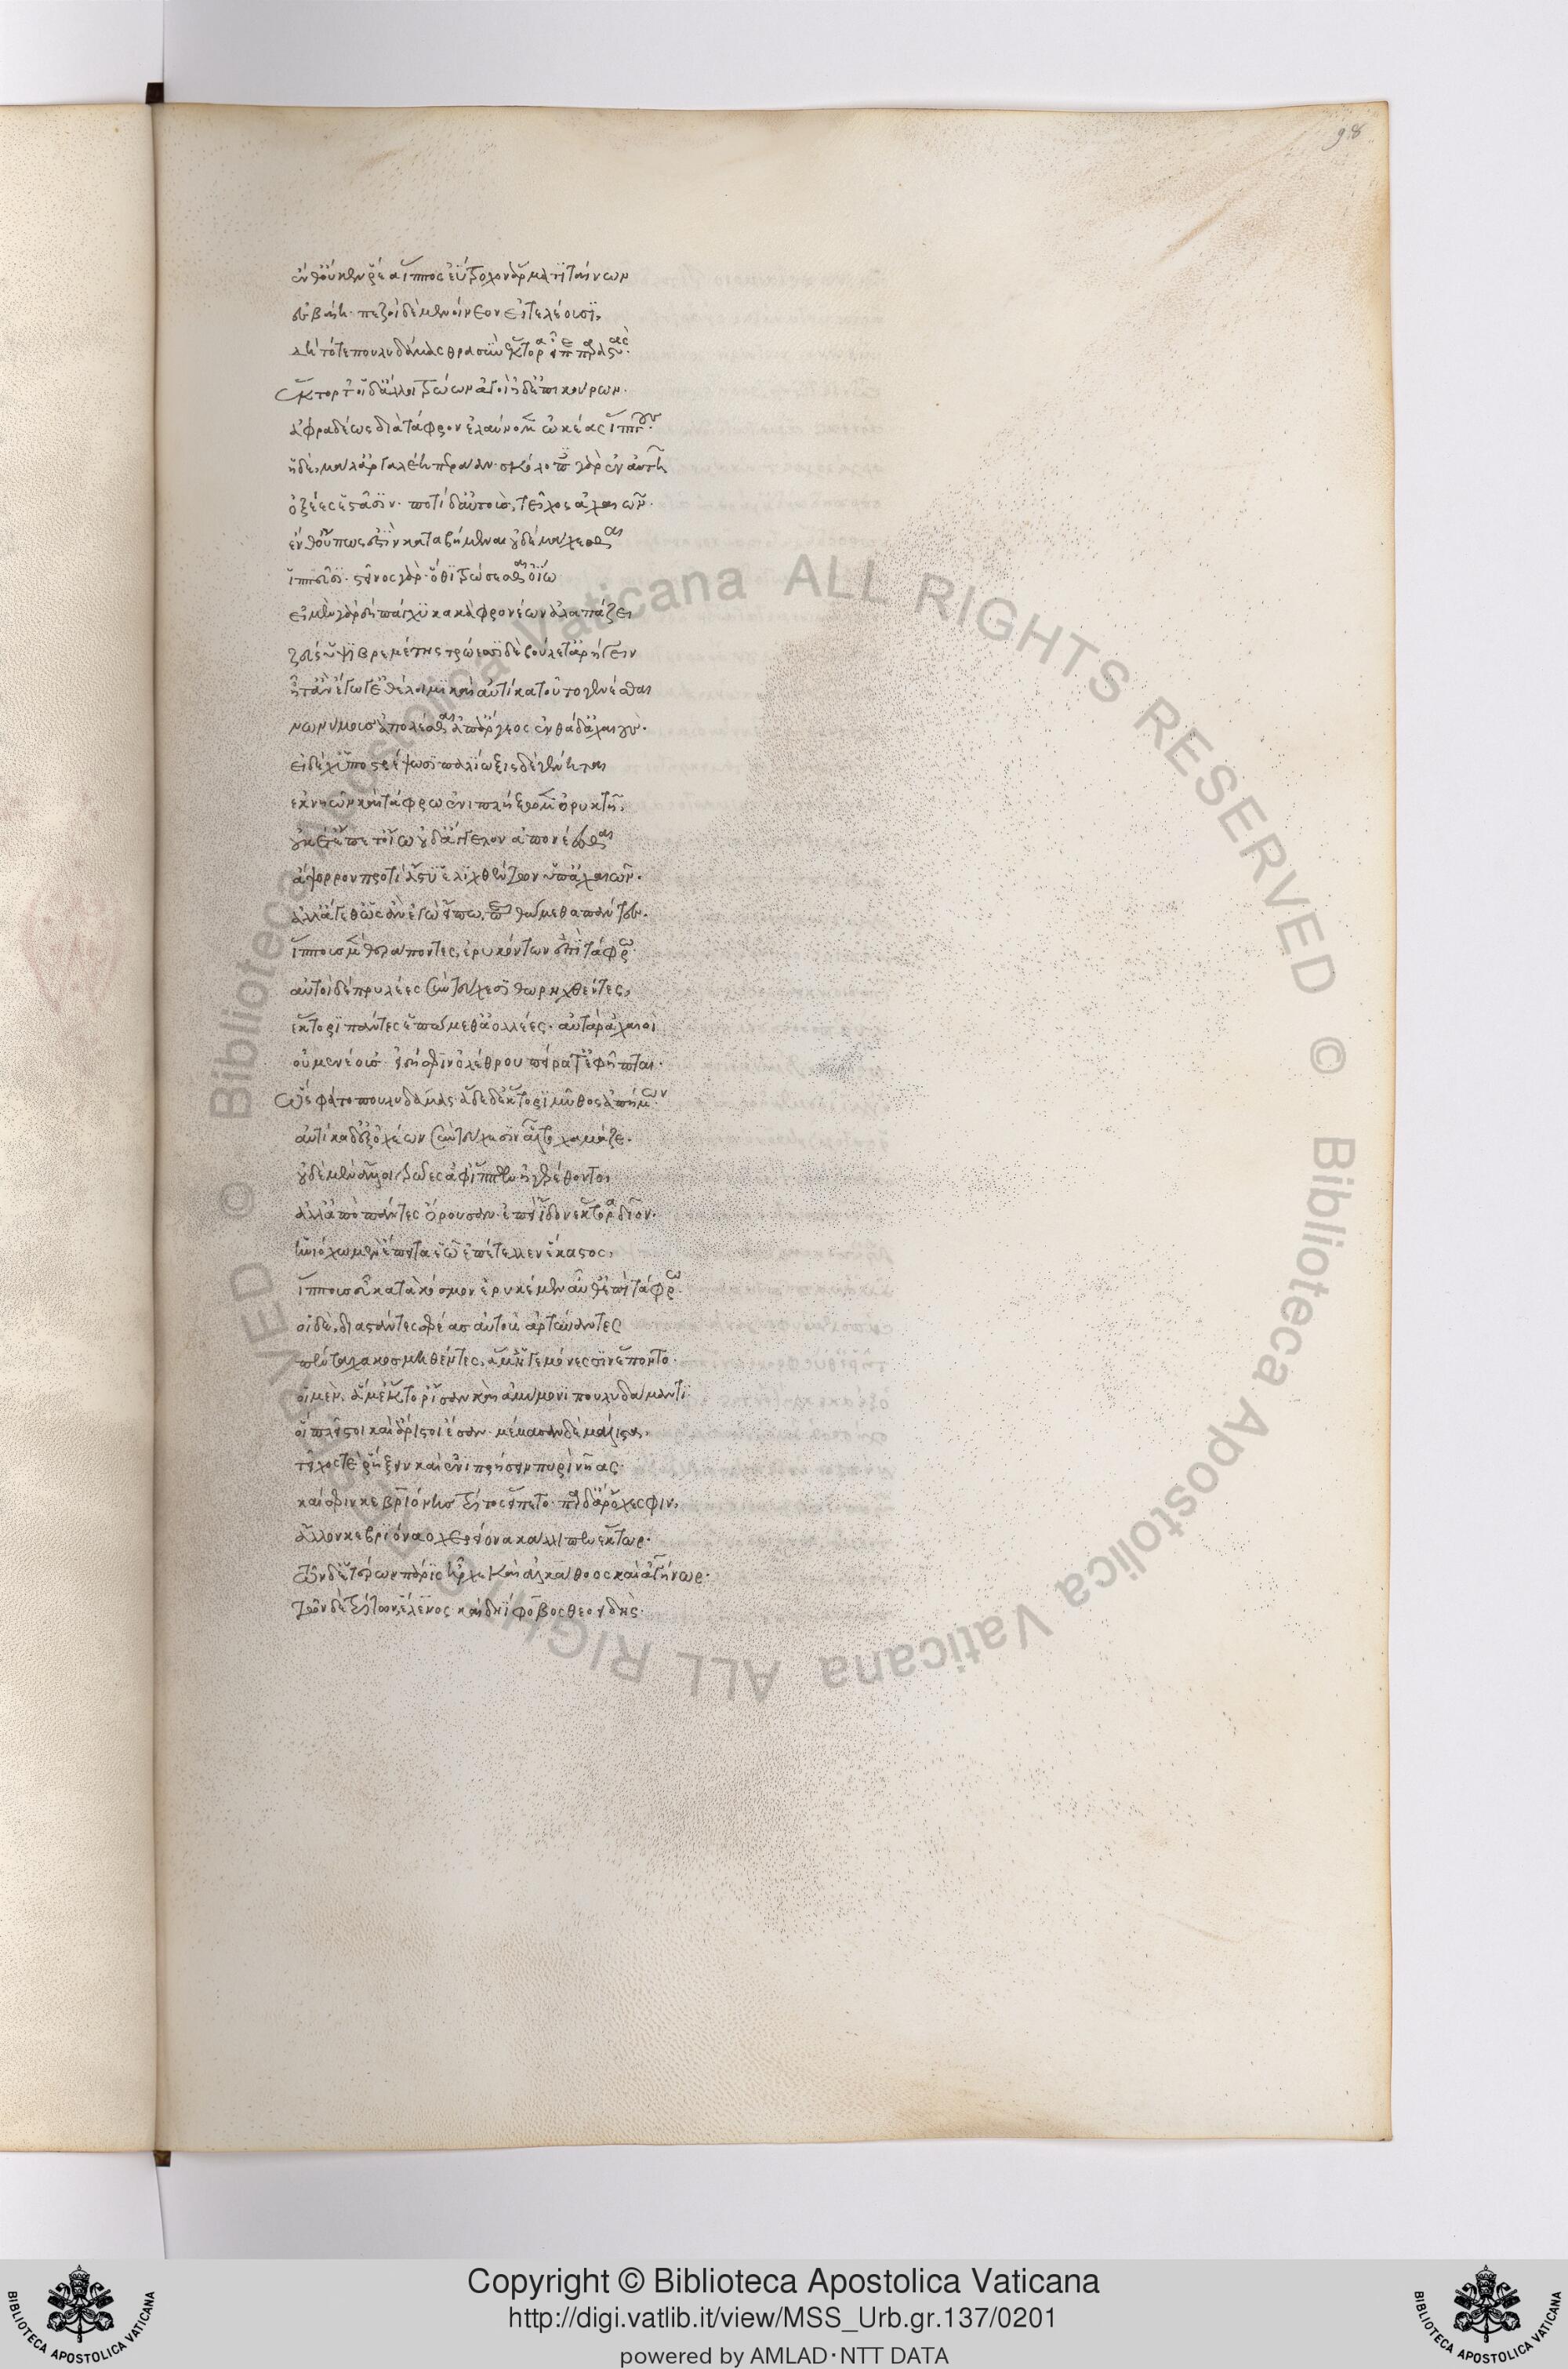 98
ἔνθ' οὔ κεν ῥέα ἵππος ἐΰτροχον ἅρμα τιταίνων
ἐσβαίη· πεζοὶ δὲ μενοίνεον εἰ τελέουσι,
δὴ τότε πουλυδάμας θρασὺν ἕκτορα εἶπε παραστάς·
ἕκτορ τ' οἵδ' ἄλλοι τρώων ἀγοὶ ἠδ' ἐπικούρων·
ἀφραδέως διὰ τάφρον ἐλαύνομεν ὠκέας ἵππους·
ἡ δὲ μάλ' ἀργαλέη περάαν· σκόλοπες γὰρ ἐν αὐτῇ
ὀξέες ἑστᾶσιν· ποτὶ δ' αὐτοὺς, τεῖχος ἀχαιῶν·
ἔνθ' οὔπως ἐστὶν καταβήμεναι οὐδὲ μάχεσθαι
ἱππεῦσι· στεῖνος γὰρ· ὅθι τρώσεσθαι ὀΐω
εἰ μὲν γὰρ δὴ πάγχυ κακὰ φρονέων ἀλαπάζει
ζεὺς ὑψιβρεμέτης τρώεσσι δὲ βούλετ' ἀρήγειν
ἦτ' ἂν ἔγωγ' ἐθέλοιμι καὶ αὐτίκα τοῦτο γενέσθαι
νωνύμους ἀπολέσθαι ἀπ' ἄργεος ἐνθάδ' ἀχαιούς·
εἰ δέ χ' ὑποστρέψωσι παλίωξις δὲ γένηται
ἐκ νηῶν καὶ τάφρω ἐνιπλήξωμεν ὀρυκτῇ,
οὐκέτ' ἔπειτ' οἴω οὐδ' ἄγγελον ἀπονέεσθαι
ἄψορρον προτὶ ἄστυ ἑλιχθέντων ὑπ' ἀχαιῶν·
ἀλλ' ἄγεθ' ὡς ἂν ἐγὼ εἴπω, πειθώμεθα πάντες·
ἵππους μὲν θεράποντες, ἐρυκόντων ἐπὶ τάφρω·
αὐτοὶ δὲ πρυλέες σὺν τεύχεσι θωρηχθέντες,
ἕκτορι πάντες ἑπώμεθ' ἀολλέες· αὐτὰρ ἀχαιοὶ
οὐ μενέουσ' εἰ δή σφιν ὀλέθρου πείρατ' ἐφῆπται·
ὣς φάτο πουλυδάμας· ἅδε δ' ἕκτορι μῦθος ἀπήμων·
αὐτίκα δ' ἐξ ὀχέων σὺν τεύχεσιν ἆλτο χαμᾶζε·
οὐδὲ μὲν ἄλλοι τρῶες ἀφ' ἵππων ἠγερέθοντο
ἀλλ' ἀπὸ πάντες ὄρουσαν· ἐπεὶ ἴδον ἕκτορα δῖον·
ἡνιόχω μὲν ἔπειτα ἑῶ ἐπέτελλεν ἕκαστος,
ἵππους εὖ κατὰ κόσμον ἐρυκέμεν αὖθ' ἐπὶ τάφρω·
οἱ δὲ, διαστάντες σφέας αὐτοὺς ἀρτύναντες
πένταχα κοσμηθέντες, ἅμ' ἡγεμόνεσσιν ἕποντο·
οἱ μὲν, ἅμ' ἕκτορ' ἴσαν καὶ ἀμύμονι πουλυδάμαντι
οἳ πλεῖστοι καὶ ἄριστοι ἔσαν· μέμασαν δὲ μάλιστα,
τεῖχός τε ῥήξειν καὶ ἐνιπρήσειν πυρὶ νῆας·
καί σφιν κεβριόνης τρίτος εἵπετο· πὰρ δ' ἄρ' ὄχεσφιν,
ἄλλον κεβριόναο χερείονα κάλλιπεν ἕκτωρ·
τῶν δ' ἑτέρων πάρις ἦρχε καὶ ἀλκάθοος καὶ ἀγήνωρ·
τῶν δὲ τρίτων, ἕλενος καὶ δηΐφοβος θεοειδὴς·
Copyright © Biblioteca Apostolica Vaticana
http://digi.vatlib.it/view/MSS_Urb.gr.137/0201
powered by AMLAD·NTT DATA
© Biblioteca Apostolica Vaticana ALL RIGHTS RESERVED © Biblioteca Apostolica Vaticana ALL RIGHTS RESERVED
BIBLIOTECA APOSTOLICA VATICANA
BIBLIOTECA APOSTOLICA VATICANA